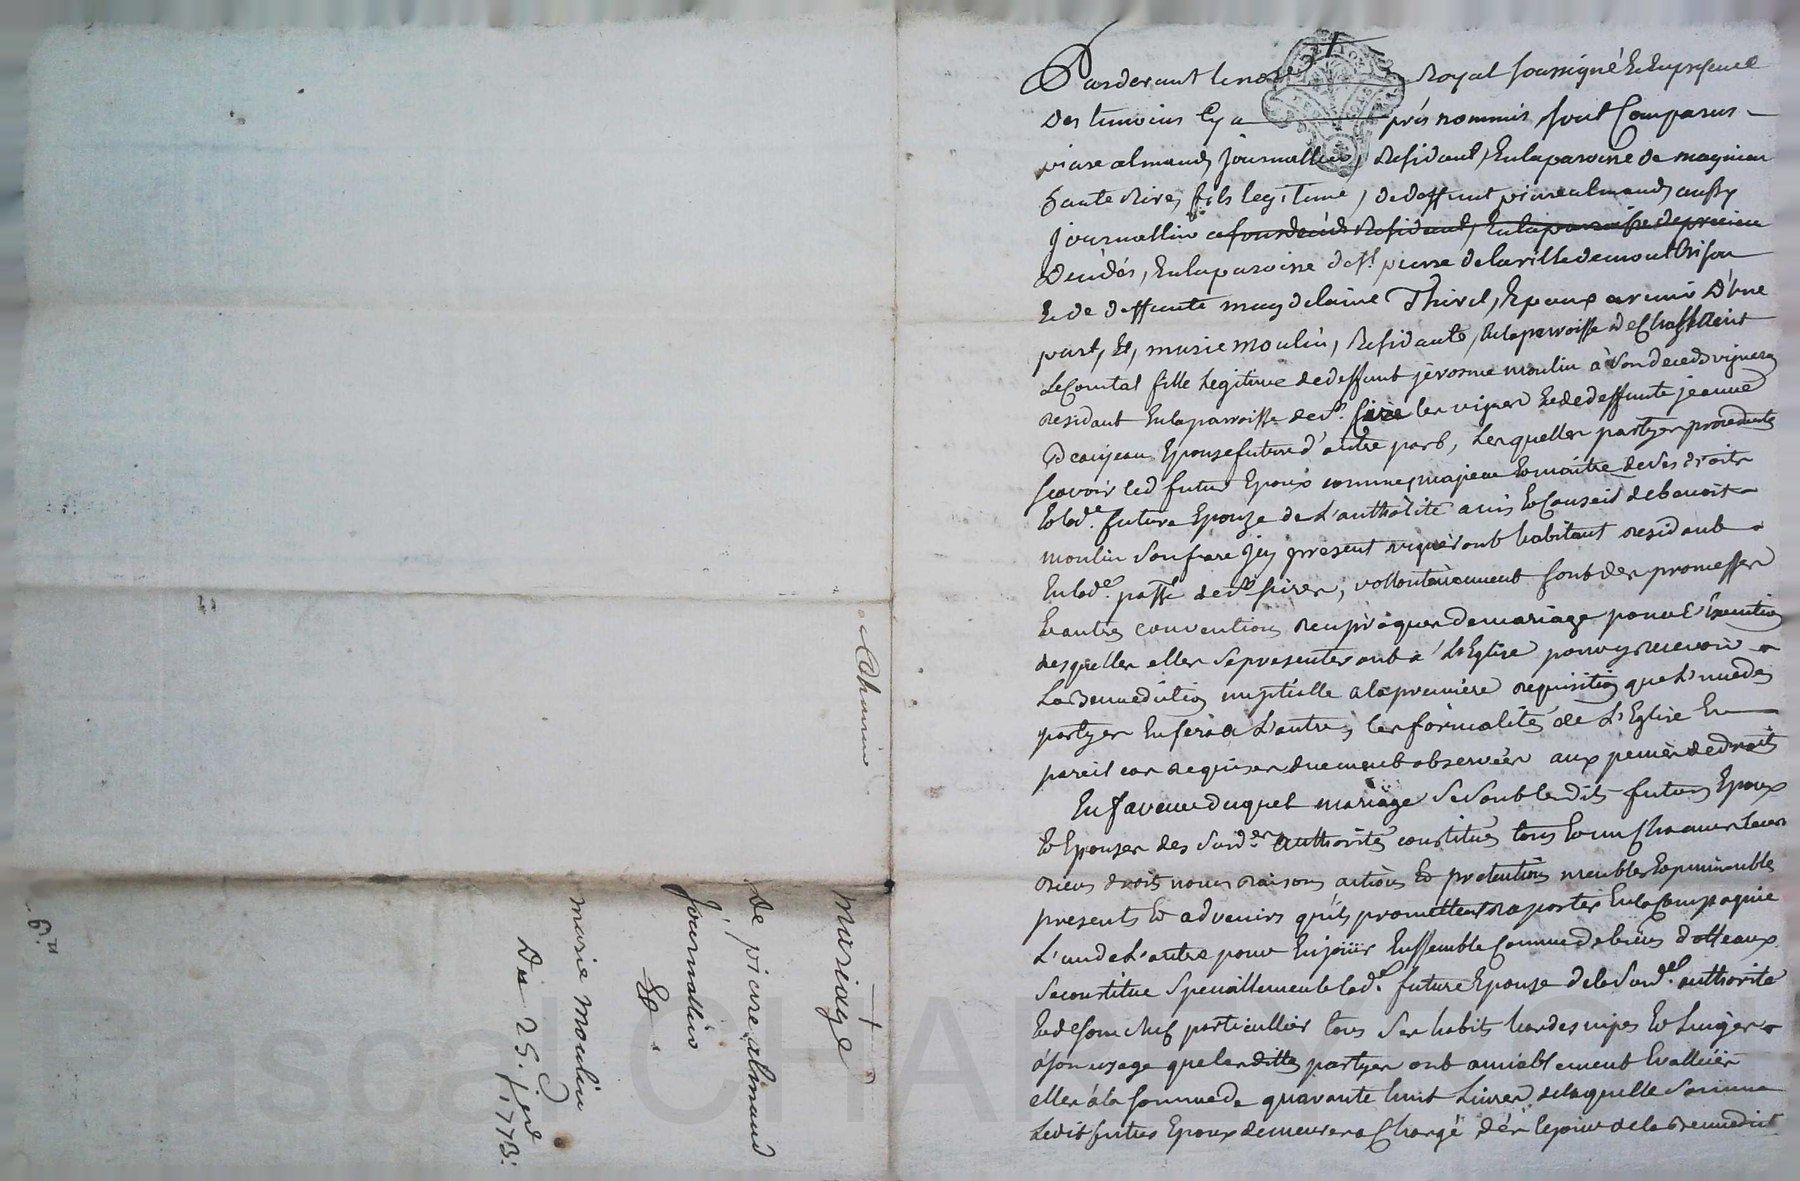 Pardevant le no Royal soussigné et en presence
des temoins cy a près nommés, sont Comparus
pierre almand, journallier, Residant, En la paroisse de magnieu
haute Rive, fils legitime, de deffunt pierre almand, aussy
journallier Residant, En la paroisse de precieu
Décédés, En la paroisse de st. pierre de la ville de montbrison
Et de deffunte magdelaine Thivel, Epoux avenir D'Une
part, Et, marie moulin, Residante, En la parroisse de Chaslain
Le Comtal fille Legitime de deffunt jerosme moulin à son deceds vigneron
residant En la parroisse de st. les vignes Et de deffunte jeanne
Epouse future d'autre part, Lesquelles partyes procedants
scavoir led futur Epoux comme majeur Et maitre de ses droits
Et lad.e future Epouze de L'authorité avis Et Conseil de benoit
moulin son frere jcy present vigneront habitant residant
En lad.e passe de st , vollontairement font des promesses
Et autres conventions reciproques de mariage pour L'Execution
desquelles elles se presenteront à L'Eglise pour y recevoir
La Bennediction nuptialle a la premiere requisition que L'une des
partyes En fera à L'autre, les formalités de L'Eglise En
pareil cas requises duement observées aux peines de droit
En faveur duquel mariage se sont lesdits futurs Epoux
Et Epouzes des susd.es authorités constitués tous Et un Chacuns leurs
biens droits noms raisons actions Et pretentions meubles Et jmmeubles
presents Et advenirs qu'ils promettent raporter En la Compagnie
L'un de L'autre pour En joüir Enssemble Comme de biens dotteaux
se constitue speciallement lad.e future Epouse de la susd.e authorité
Et de son chef particullier tous ses habits hardes nipes Et Linges
à son usage que lesdittes partyes ont amiablement Evalluér
elles à la somme de quarante huit Livres de laquelle somme
Ledit futur Epoux demeurera Chargé dèz le jour de la Bennedict
mariage
De pierre almand
Journallier
Et
marie moulin
Du 25. 1773.